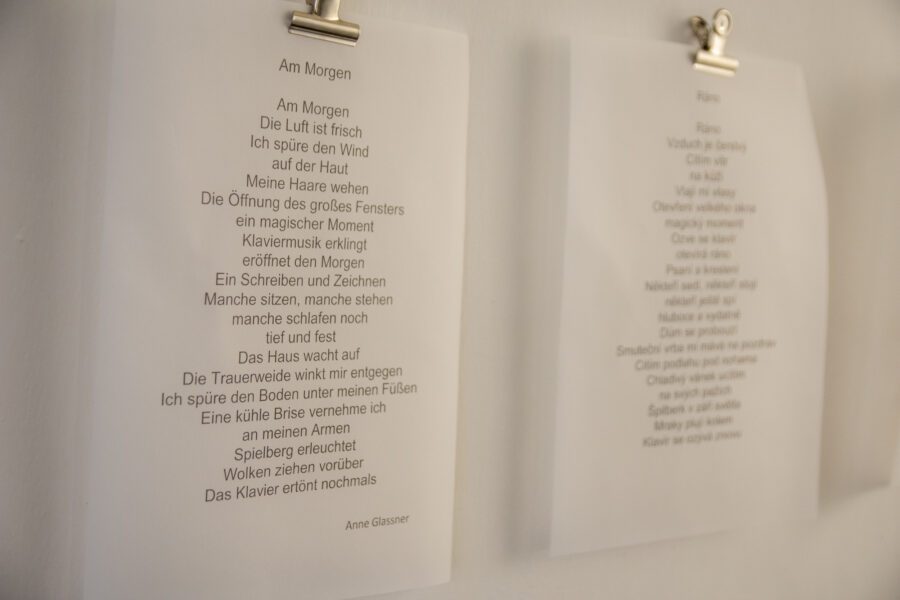 Am Morgen
Am Morgen
Die Luft ist frisch
Ich spüre den Wind
auf der Haut
Meine Haare wehen
Die Öffnung des großes Fensters
ein magischer Moment
Klaviermusik erklingt
eröffnet den Morgen
Ein Schreiben und Zeichnen
Manche sitzen, manche stehen
manche schlafen noch
tief und fest
Das Haus wacht auf
Die Trauerweide winkt mir entgegen
Ich spüre den Boden unter meinen Füßen
Eine kühle Brise vernehme ich
an meinen Armen
Spielberg erleuchtet
Wolken ziehen vorüber
Das Klavier ertönt nochmals
Anne Glassner
Ráno
Ráno
Vzduch je čerstvý
Cítím vítr
na kůži
Vlají mi vlasy
Otevření velkého okna
magický moment
Ozve se klavír
otevírá ráno
Psaní a kreslení
Někteří sedí, někteří stojí
někteří ještě spí
hluboce a vydatně
Dům se probouzí
Smuteční vrba mi mává na pozdrav
Cítím podlahu pod nohama
Chladivý vánek ucítím
na svých pažích
Špilberk v záři světla
Mraky plují kolem
Klavír se ozývá znovu